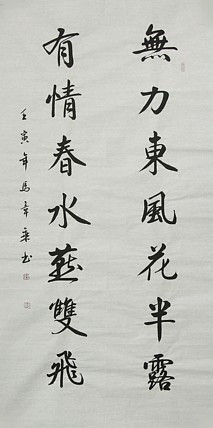 無力東風花半露
有情春水燕雙飛
壬寅年馬幸來书